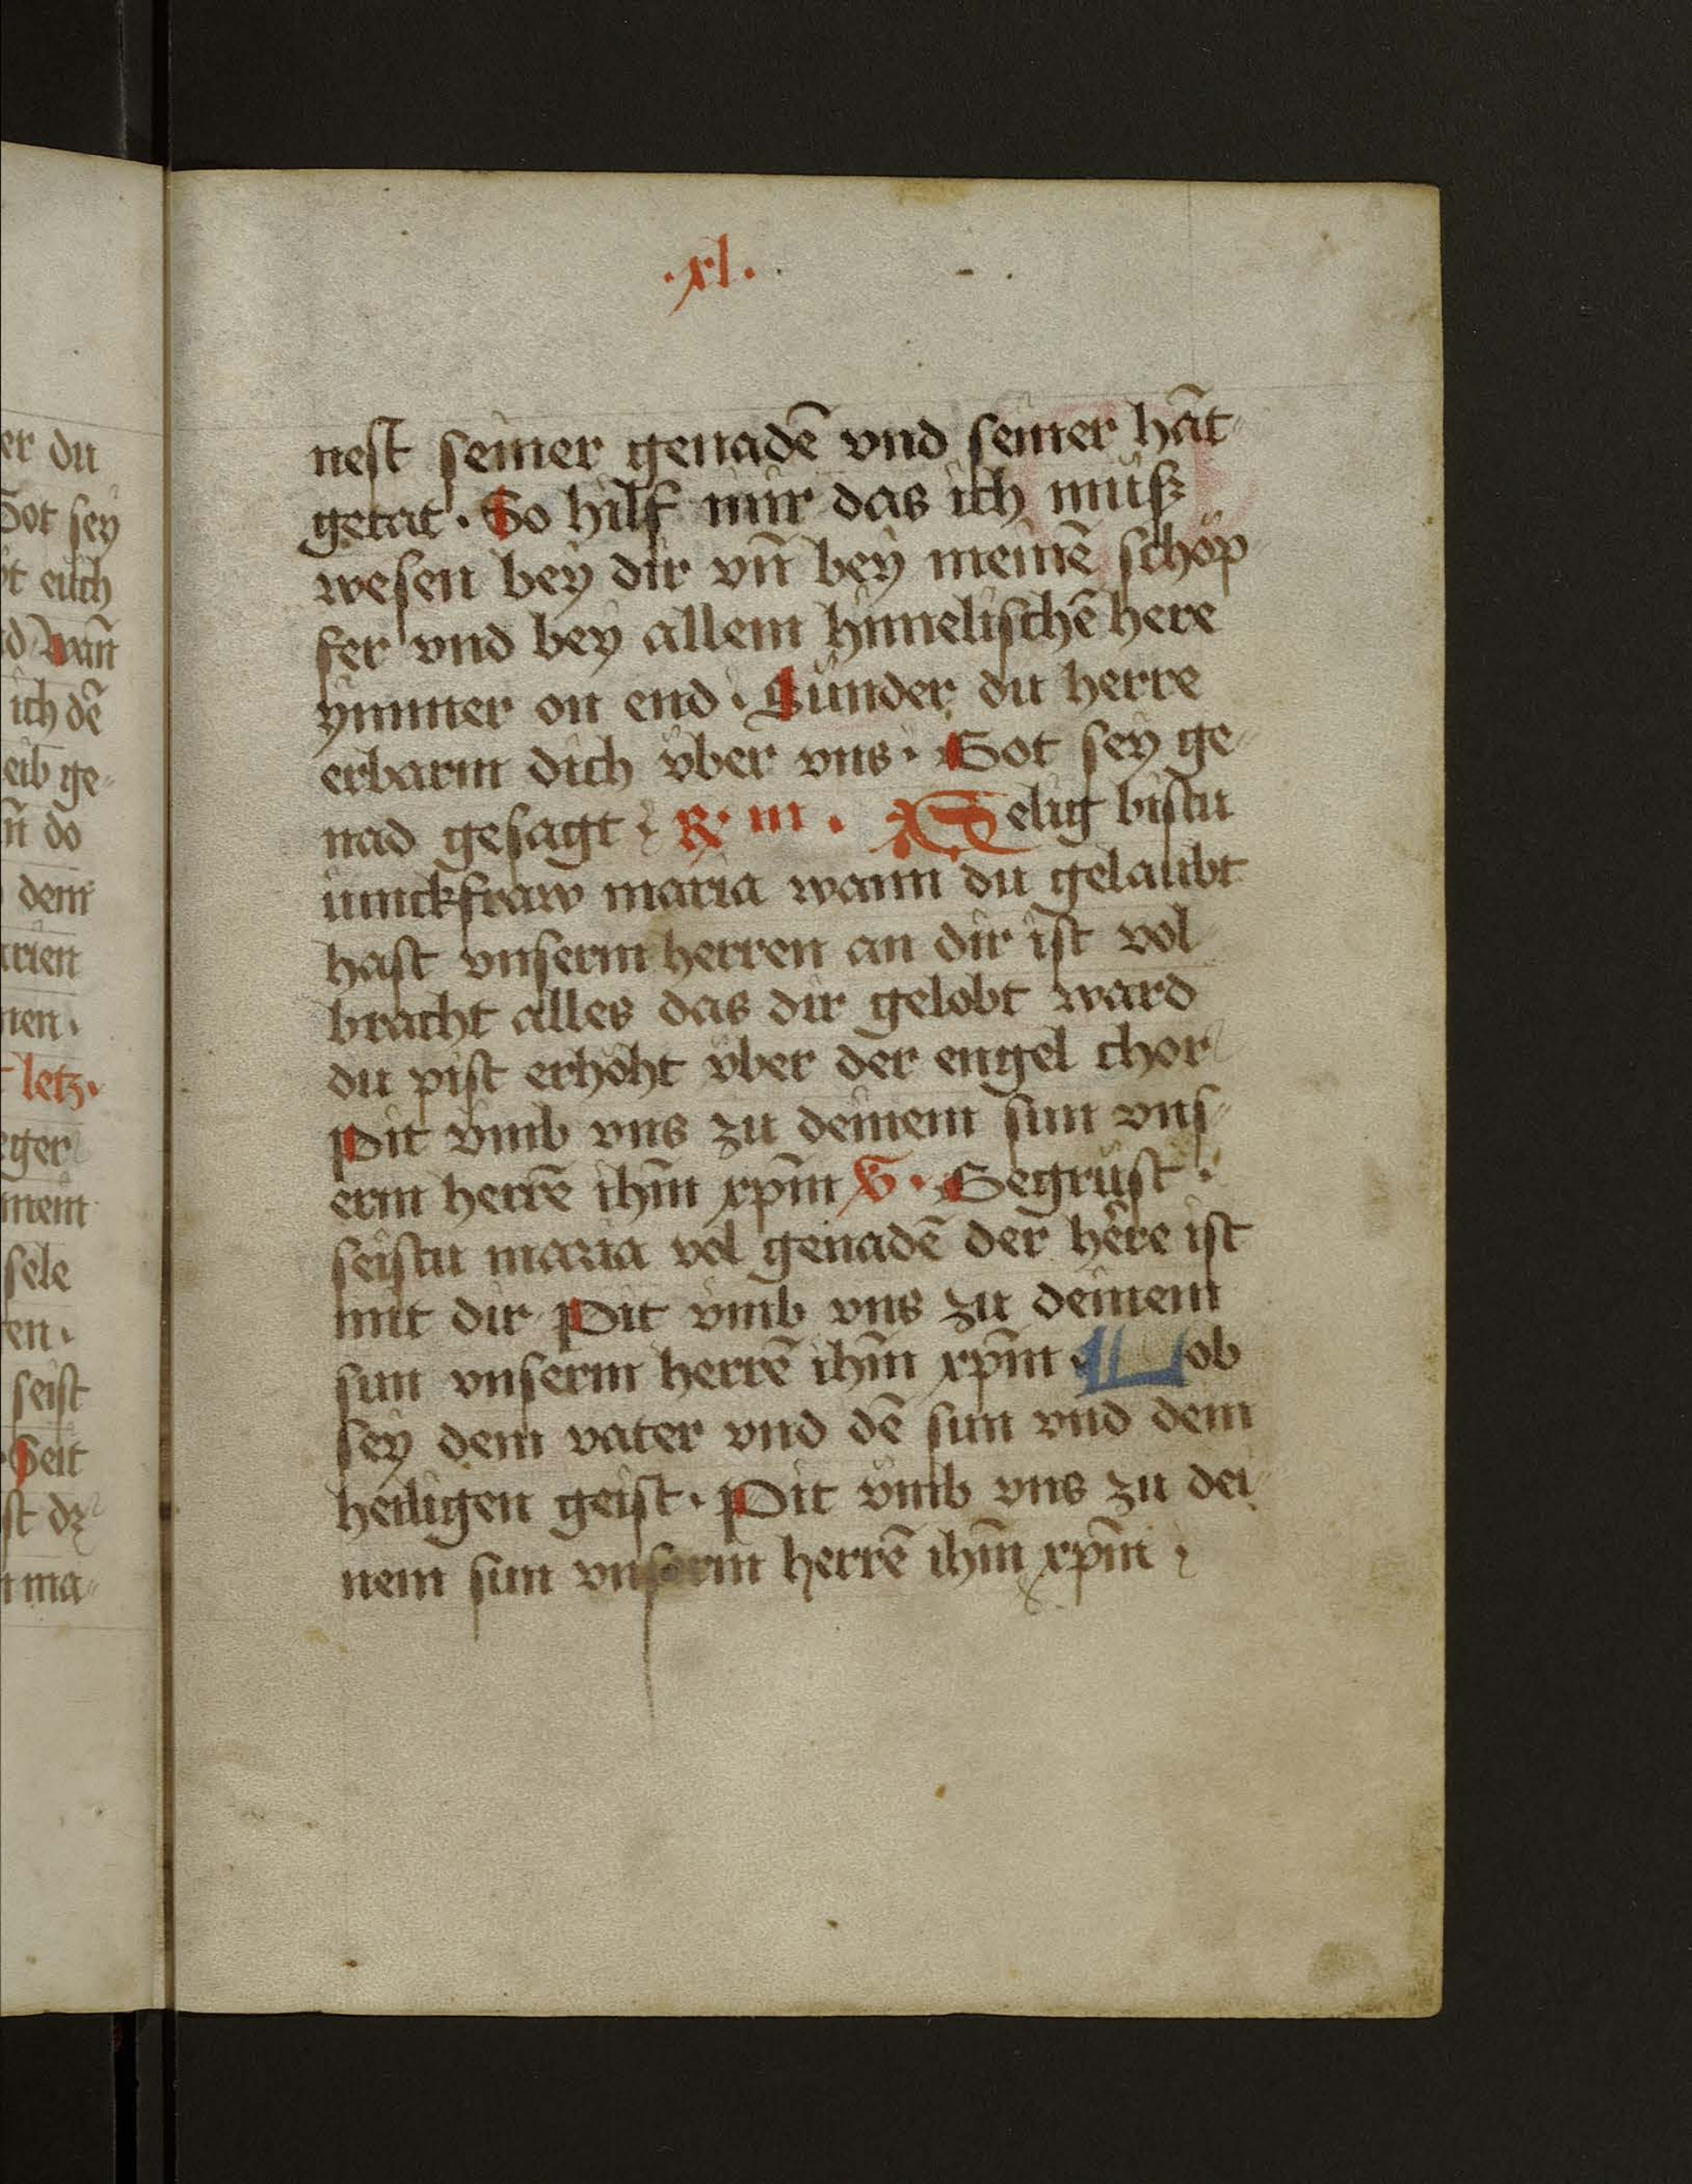 .xl.
nest seiner genadē vnd seiner hāt
getat. So hilf mir das ich müsz
wesen bey dir vn̄ bey meinē schöp
fer vnd bey allem himelischē here
ymmer on end. Sünder du herre
erbarm dich vber vns. Got sey ge
nad gesagt R. iii. Selig bistu
iunckfraw maria wann du gelaubt
hast vnserm herren an dir ist vol
bracht alles das dir gelobt ward
du pist erhöht vber der engel chor
Pit vmb vns zu deinem sun vns
erm herrē ihm̄ xpm̄ V. Gegrüst
seistu maria vol genadē der here ist
mit dir Pit vmb vns zu deinem
sun vnserm herrē ihm̄ xpm̄ Lob
sey dem vater vnd dē sun vnd dem
heiligen geist. Pit vmb vns zu dei
nem sun vnserm herrē ihm̄ xpm̄
er du
Got sey
t euch
wan̄
ich dē
eib ge
n̄ do
dem
arien
nen.
letz.
eger
nem
sele
en.
seist
Seit
st dz
ma